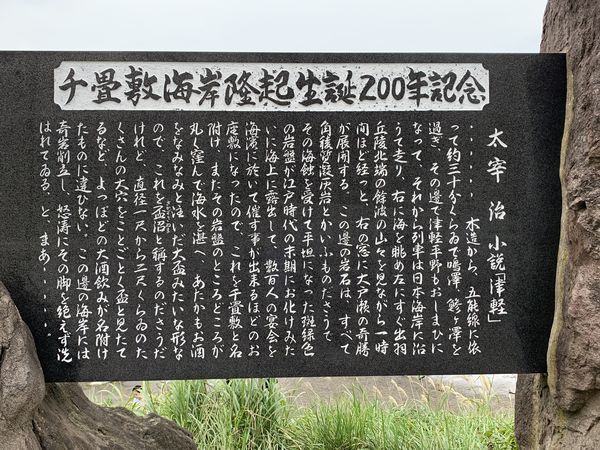 千畳敷海岸隆起生誕200年記念
太宰 治 小説「津軽」
・・・・・・木造から、五能線に依
って約三十分くらゐで鳴澤、鰺ヶ澤を
過ぎ、その邊で津軽平野もおしまひに
なって、それから列車は日本海岸に沿
うて走り、右に海を眺め左にすぐ出羽
丘陵北端の餘波の山々を見ながら一時
間ほど經つと、右の窓に大戸瀬の奇勝
が展開する。この邊の岩石は、すべて
角稜質凝灰岩とかいふものださうで、
その海蝕を受けて平坦になった斑緑色
の岩盤が江戸時代の末期にお化けみた
いに海上に露出して、数百人の宴会を
海濱に於いて催す事が出来るほどのお
座敷になったので、これを千畳敷と名
附け、またその岩盤のところどころが
丸く窪んで海水を湛へ、あたかもお酒
をなみなみと注いだ大盃みたいな形な
ので、これを盃沼と稱するのださうだ
けれど、直径一尺から二尺くらゐのた
くさんの大穴をことごとく盃と見たて
るなど、よっぽどの大酒飲みが名附け
たものに違ひない。この邊の海岸には
奇岩削立し、怒涛にその脚を絶えず洗
はれてゐる、と、まあ、・・・・・